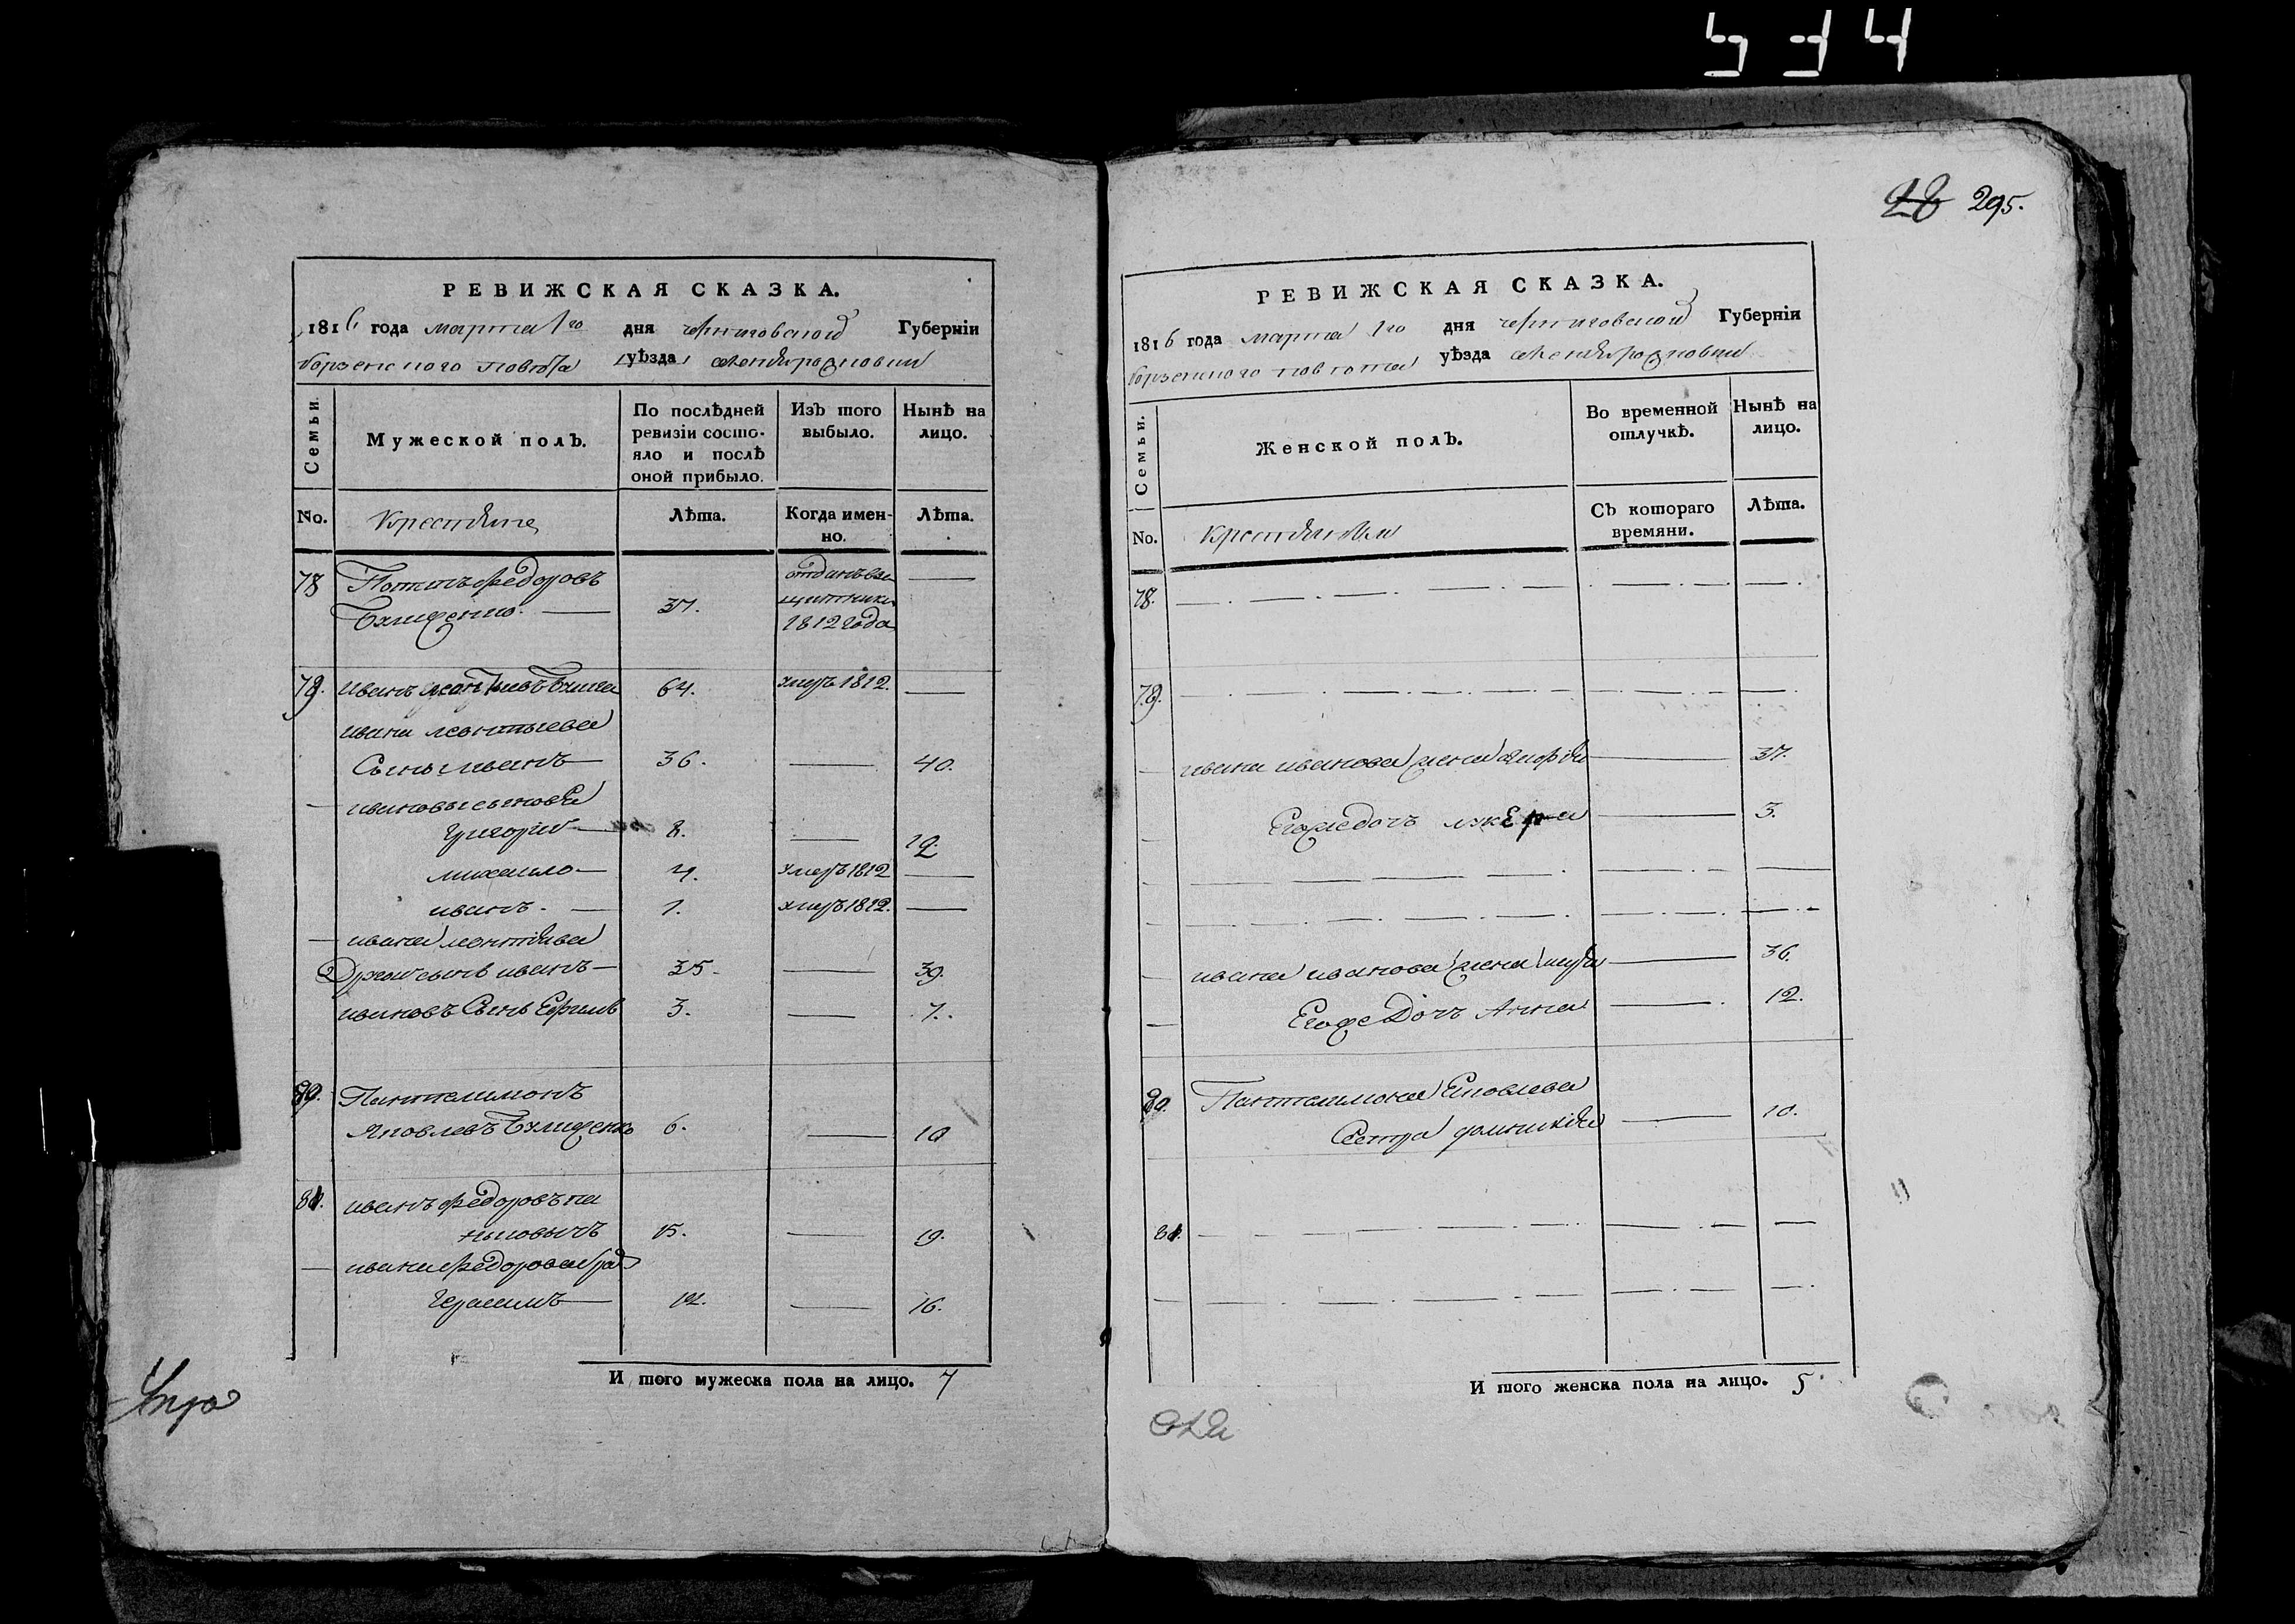 534
295.
РЕВИЖСКАЯ СКАЗКА.
1816 года марта 1го дня черниговской Губернїи
борзенского повѣта уѣзда
Семьи.
Мужеской полъ.
По послѣдней ревизїи состояло и послѣ оной прибыло.
Изъ того выбыло.
Нынѣ на лицо.
No.
Крестьяне
Лѣта.
Когда именно.
Лѣта.
78 Потапъ федоровъ
37. отданъ
1812 года
79. иванъ леонтьевъ 64. умеръ 1812. —
ивана леонтьева
Сынъ иванъ — 36. — 40.
— ивановы сыновья
Григорий — 8. — 12.
михайло — 4. умеръ 1812 —
иванъ. — 1. умеръ 1812. —
— ивана леонтьева
2 Другой сынъ иванъ — 35. — 39.
ивановъ Сынъ Ефимъ 3. — 7.
80. Пантелимонъ
Яковлевъ 6. — 10
81. иванъ федоровъ па
15. — 19.
— ивана федорова братъ
Герасимъ — 12. — 16.
И того мужеска пола на лицо. 7
РЕВИЖСКАЯ СКАЗКА.
1816 года марта 1го дня черниговской Губернїи
борзенского повѣта уѣзда
Семьи.
Женской полъ.
Во временной отлучкѣ.
Нынѣ на лицо.
No.
Крестьянки
Съ котораго времяни.
Лѣта.
78.
79.
ивана иванова жена — 37.
Егожедочъ — 3.
ивана иванова жена — 36.
Егоже Дочъ Анна — 12.
80. Пантелимона Яковлева
Сестра — 10.
81.
И того женска пола на лицо. 5